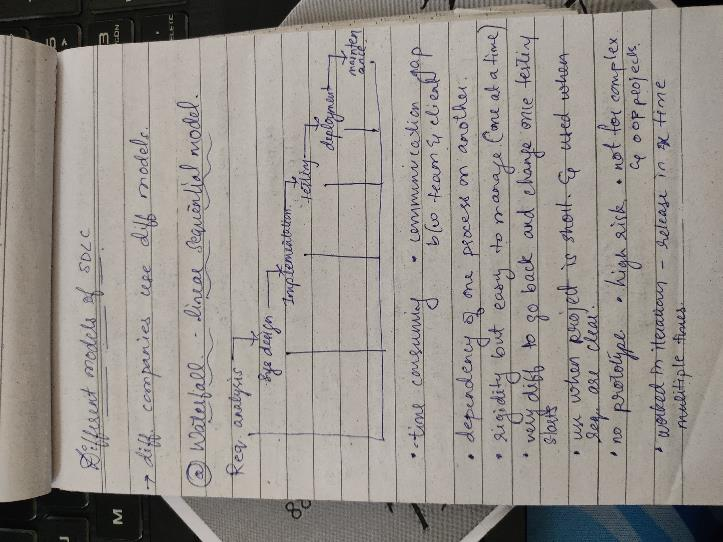 Different models of SDLC
→ diff. companies use diff models.
ⓐ Waterfall - linear sequential model.
Req. analysis
Sys design
Implementation
testing
deployment
mainten
ance
• time consuming • communication gap
b/w team & client
• dependency of one process on another.
• rigidity but easy to manage. (one at a time)
• very diff to go back and change once testing
starts
• use when project is short & used when
req. are clear.
• no prototype • high risk • not for complex
& oop projects
• worked in iterations - release in time
multiple times.
M